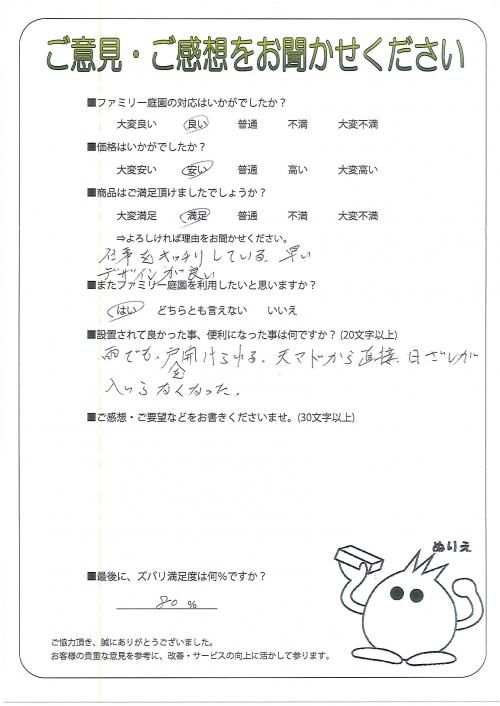 ご意見・ご感想をお聞かせください
■ファミリー庭園の対応はいかがでしたか？
大変良い 良い 普通 不満 大変不満
■価格はいかがでしたか？
大変安い 安い 普通 高い 大変高い
■商品はご満足頂けましたでしょうか？
大変満足 満足 普通 不満 大変不満
⇒よろしければ理由をお聞かせください。
仕事をキッチリしている、早い
デザインが良い
■またファミリー庭園を利用したいと思いますか？
はい どちらとも言えない いいえ
■設置されて良かった事、便利になった事は何ですか？(20文字以上)
雨でも、戸開けられる、天マドから直接、日ざしが
入らなくなった。
■ご感想・ご要望などをお書きくださいませ。(30文字以上)
ぬりえ
■最後に、ズバリ満足度は何％ですか？
80 %
ご協力頂き、誠にありがとうございました。
お客様の貴重な意見を参考に、改善・サービスの向上に活かして参ります。